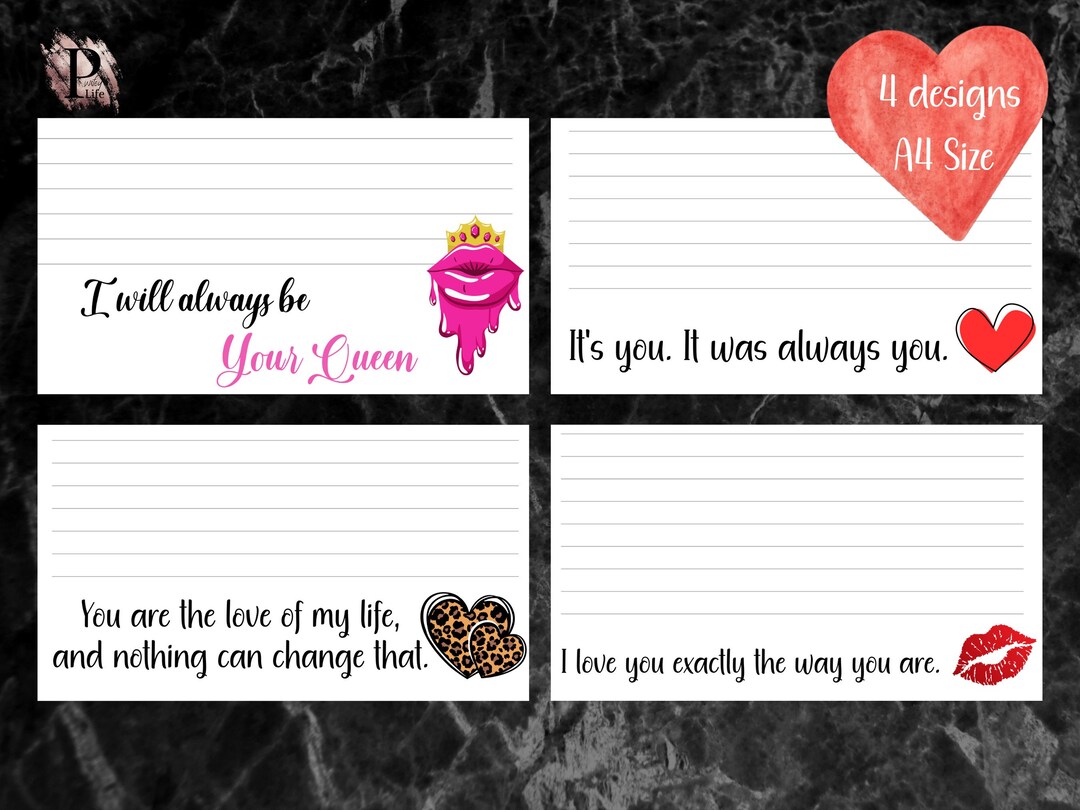 P
Life
4 designs
A4 Size
I will always be
Your Queen
It's you. It was always you.
You are the love of my life,
and nothing can change that.
I love you exactly the way you are.